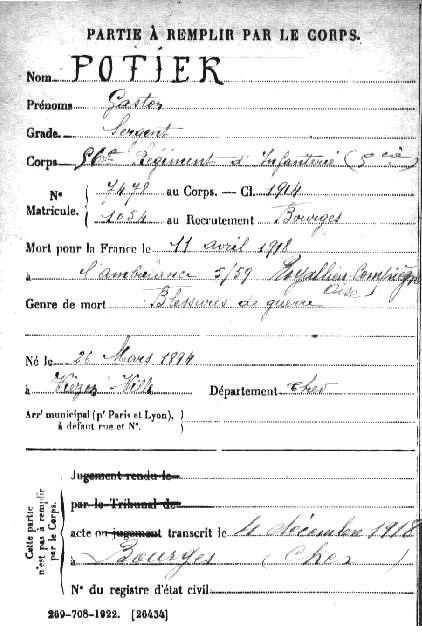 PARTIE À REMPLIR PAR LE CORPS.
Nom POTIER
Prénoms Gaston
Grade Sergent
Corps Régiment d'Infanterie
Nº Matricule. 7478 au Corps. — Cl. 1914
1054 au Recrutement Bourges
Mort pour la France le 11 avril 1918
à l'ambulance 5/59 Royallieu-Compiègne
Oise
Genre de mort Blessures de guerre
Né le 26 Mars 1894
à Département Cher
Arrt municipal (pr Paris et Lyon),
à défaut rue et Nº.
Cette partie n'est pas à remplir par le Corps.
Jugement rendu le
par le Tribunal de
acte ou jugement transcrit le décembre 1918
à Bourges (Cher)
Nº du registre d'état civil
269-708-1922. [26434]